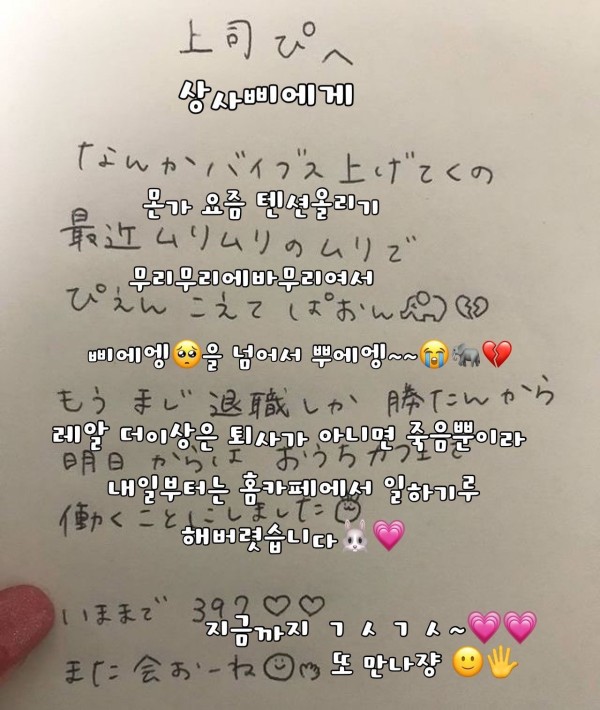 上司ぴへ
상사삐에게
なんかバイブス上げてくの
몬가 요즘 텐션올리기
最近ムリムリのムリで
무리무리에바무리여서
ぴえん こえて ぱおん🐘💔
삐에엥🥺을 넘어서 뿌에엥~~😭🐘💔
もう まじ 退職しか 勝たんから
레알 더이상은 퇴사가 아니면 죽음뿐이라
明日 からは おうちカフェで
내일부터는 홈카페에서 일하기루
働くことにしました
해버렷습니다🐰💗
いままで 393♡♡
지금까지 ㄱㅅㄱㅅ~💗💗
また会おーね☺
또 만나쟝 🙂🖐